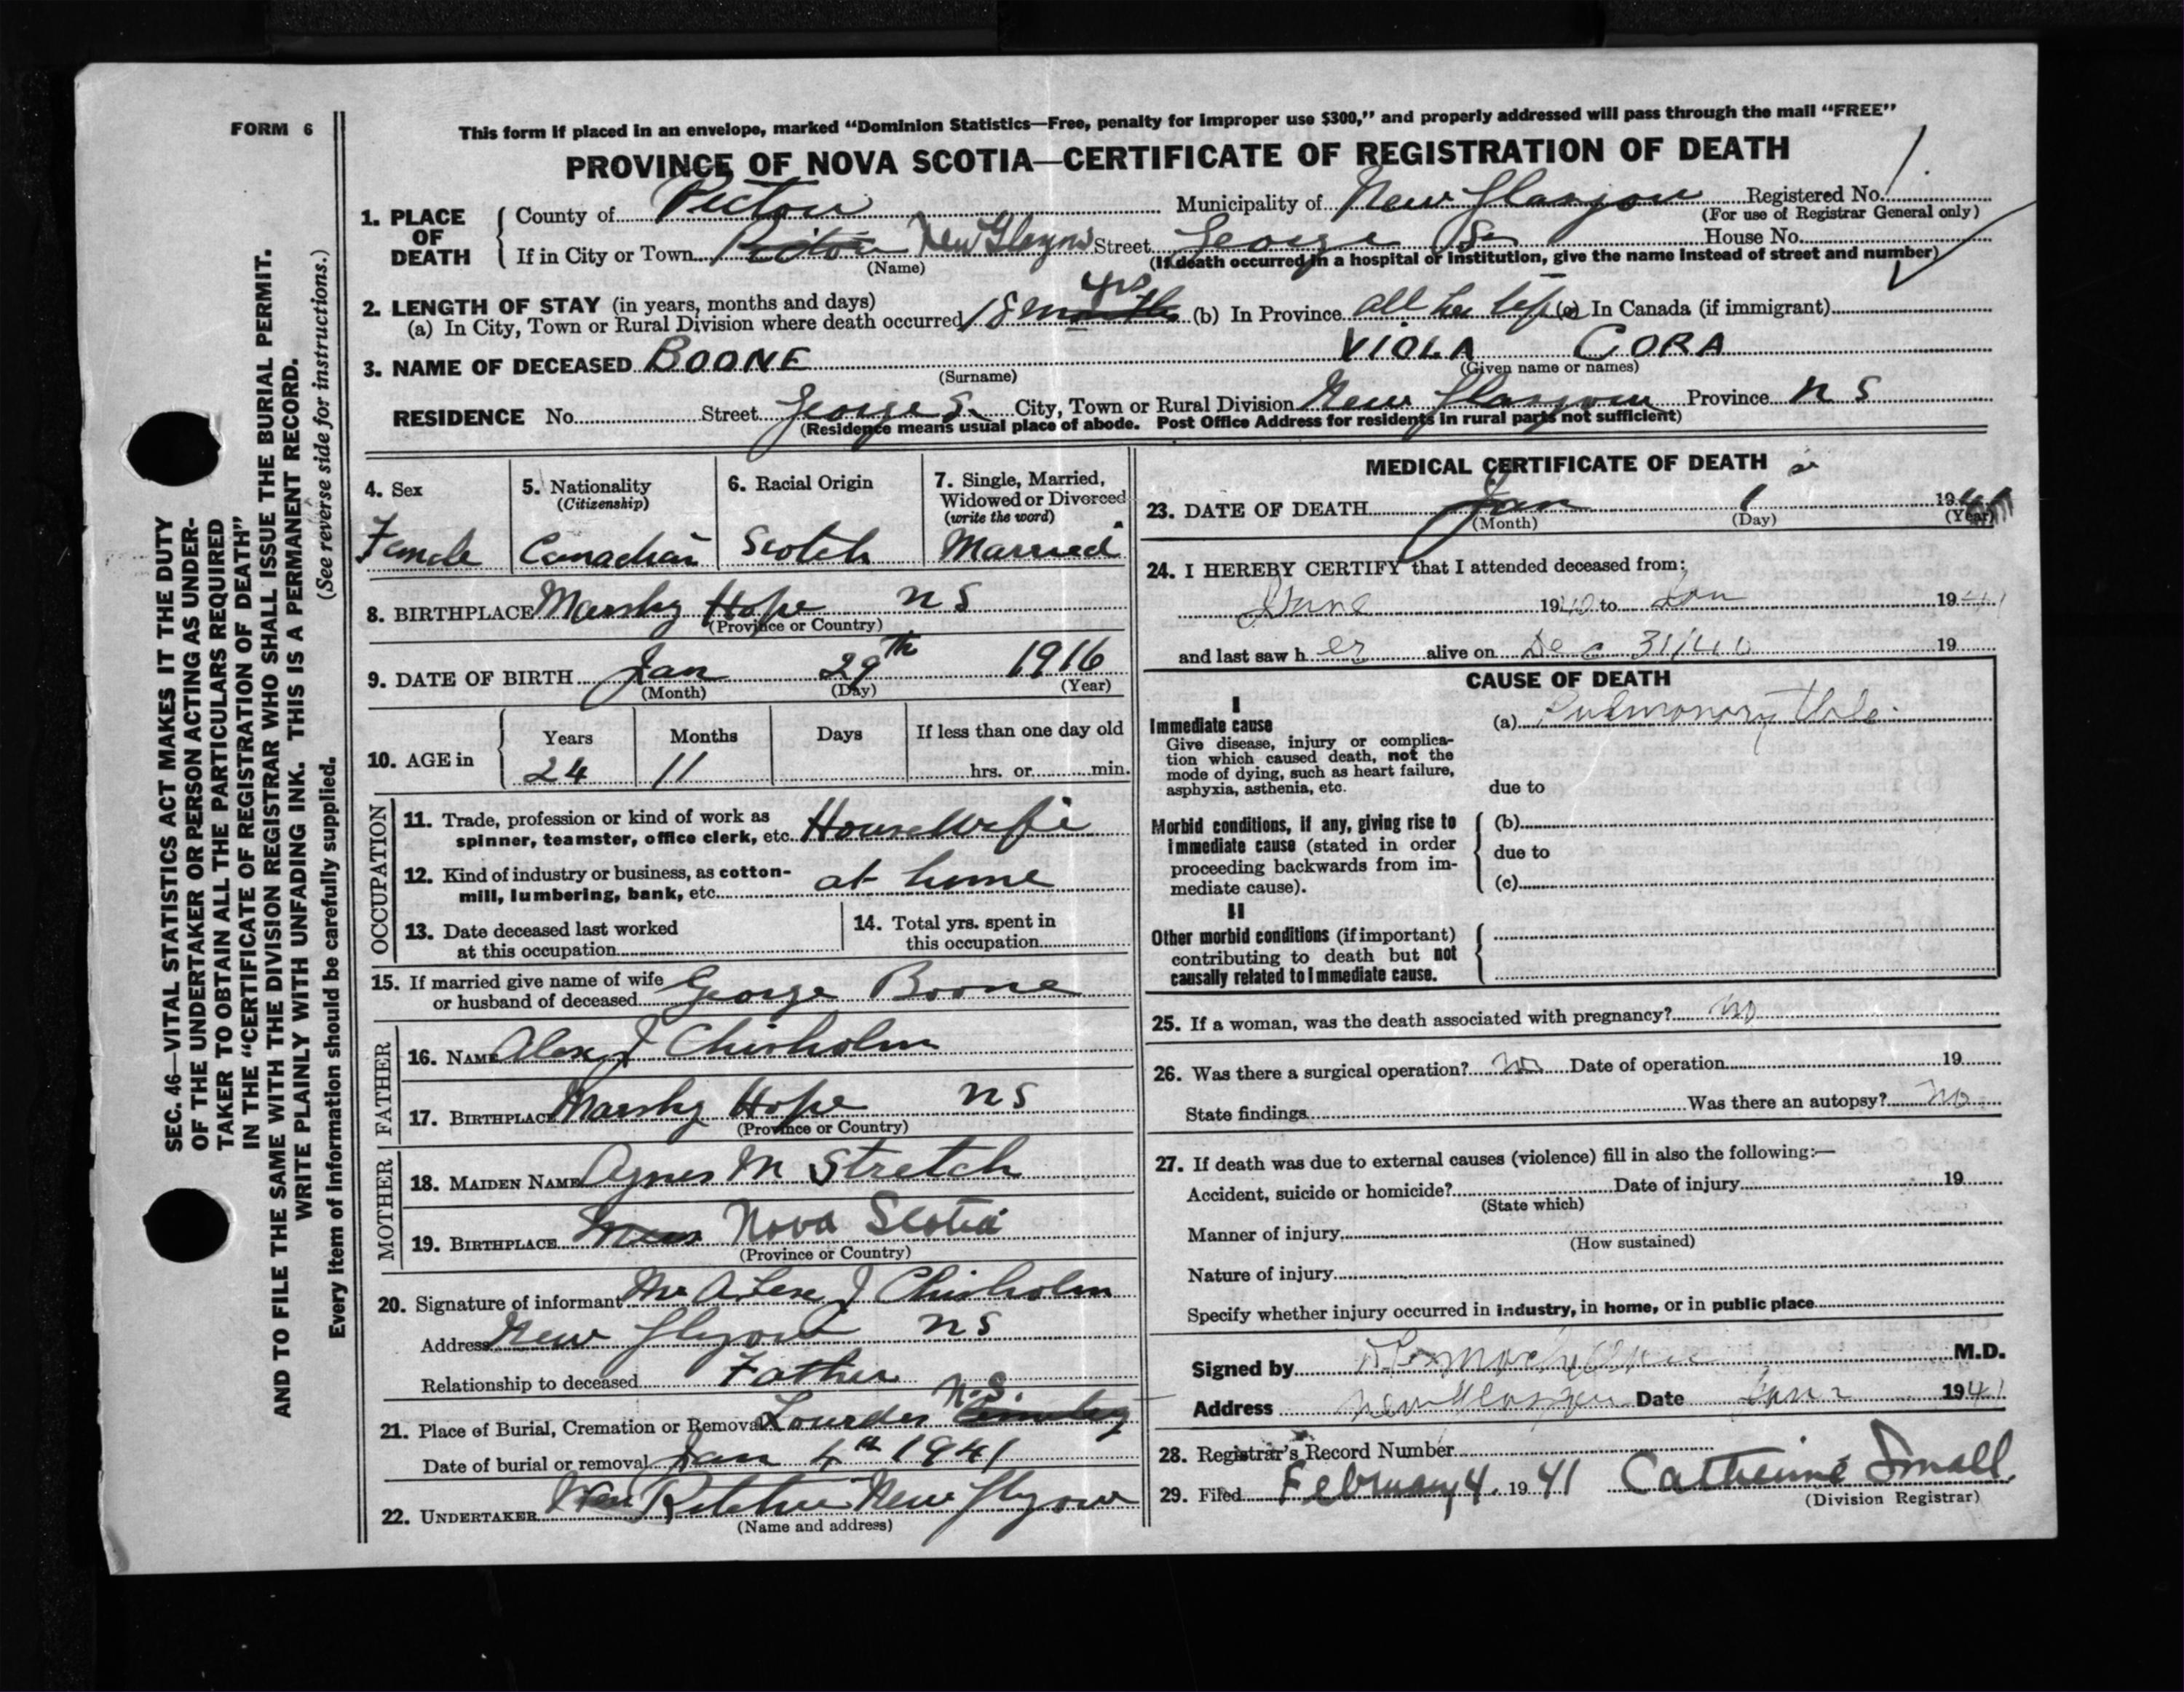 FORM 6
This form if placed in an envelope, marked “Dominion Statistics—Free, penalty for improper use $300,” and properly addressed will pass through the mail “FREE”
PROVINCE OF NOVA SCOTIA—CERTIFICATE OF REGISTRATION OF DEATH
1. PLACE OF DEATH
County of Pictou Municipality of New Glasgow Registered No.
(For use of Registrar General only)
If in City or Town Pictou New Glasgow Street George St House No.
(Name) (If death occurred in a hospital or institution, give the name instead of street and number)
2. LENGTH OF STAY (in years, months and days)
(a) In City, Town or Rural Division where death occurred 18 months yrs (b) In Province all her life (c) In Canada (if immigrant)
3. NAME OF DECEASED BOONE VIOLA CORA
(Surname) (Given name or names)
RESIDENCE No. Street George St. City, Town or Rural Division New Glasgow Province N S
(Residence means usual place of abode. Post Office Address for residents in rural parts not sufficient)
4. Sex
Female
5. Nationality
(Citizenship)
Canadian
6. Racial Origin
Scotch
7. Single, Married,
Widowed or Divorced
(write the word)
Married
8. BIRTHPLACE Marshy Hope N S
(Province or Country)
9. DATE OF BIRTH Jan 29th 1916
(Month) (Day) (Year)
10. AGE in Years Months Days If less than one day old
24 11 hrs. or min.
OCCUPATION
11. Trade, profession or kind of work as
spinner, teamster, office clerk, etc. Housewife
12. Kind of industry or business, as cotton-
mill, lumbering, bank, etc. at home
13. Date deceased last worked
at this occupation
14. Total yrs. spent in
this occupation
15. If married give name of wife
or husband of deceased George Boone
FATHER
16. NAME Alex J Chisholm
17. BIRTHPLACE Marshy Hope N S
(Province or Country)
MOTHER
18. MAIDEN NAME Agnes M Stretch
19. BIRTHPLACE Nova Scotia
(Province or Country)
20. Signature of informant Mr Alex J Chisholm
Address New Glasgow N S
Relationship to deceased Father
21. Place of Burial, Cremation or Removal Lourdes N.S.
Date of burial or removal Jan 4th 1941
22. UNDERTAKER Ritchie New Glasgow
(Name and address)
MEDICAL CERTIFICATE OF DEATH
23. DATE OF DEATH Jan 1 1941
(Month) (Day) (Year)
24. I HEREBY CERTIFY that I attended deceased from:
June 1940 to Jan 1941
and last saw her alive on Dec 31/40 19
CAUSE OF DEATH
I
Immediate cause
Give disease, injury or complica-
tion which caused death, not the
mode of dying, such as heart failure,
asphyxia, asthenia, etc.
(a) Pulmonary Tbc.
due to
Morbid conditions, if any, giving rise to
immediate cause (stated in order
proceeding backwards from im-
mediate cause).
(b)
due to
(c)
II
Other morbid conditions (if important)
contributing to death but not
causally related to immediate cause.
25. If a woman, was the death associated with pregnancy? no
26. Was there a surgical operation? no Date of operation 19
State findings Was there an autopsy? no
27. If death was due to external causes (violence) fill in also the following:—
Accident, suicide or homicide? Date of injury 19
(State which)
Manner of injury
(How sustained)
Nature of injury
Specify whether injury occurred in industry, in home, or in public place
Signed by M.D.
Address New Glasgow Date Jan 2 1941
28. Registrar's Record Number
29. Filed February 4. 1941 Catherine Small
(Division Registrar)
SEC. 46—VITAL STATISTICS ACT MAKES IT THE DUTY
OF THE UNDERTAKER OR PERSON ACTING AS UNDER-
TAKER TO OBTAIN ALL THE PARTICULARS REQUIRED
IN THE “CERTIFICATE OF REGISTRATION OF DEATH”
AND TO FILE THE SAME WITH THE DIVISION REGISTRAR WHO SHALL ISSUE THE BURIAL PERMIT.
WRITE PLAINLY WITH UNFADING INK. THIS IS A PERMANENT RECORD.
Every item of information should be carefully supplied. (See reverse side for instructions.)